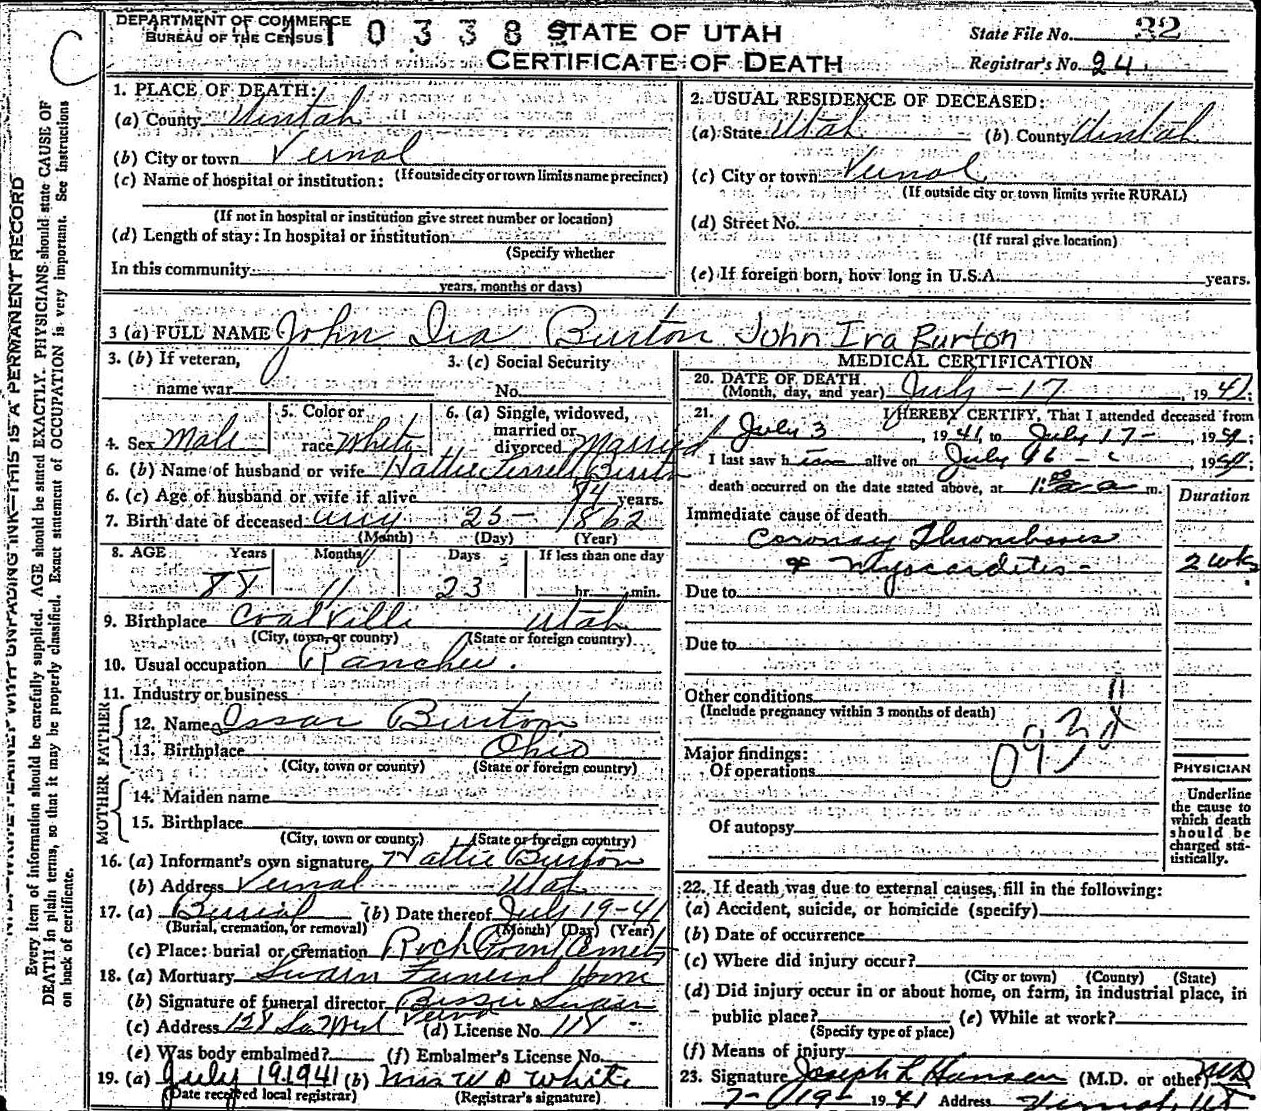 DEPARTMENT OF COMMERCE
BUREAU OF THE CENSUS
STATE OF UTAH
CERTIFICATE OF DEATH
State File No. 32
Registrar's No. 24
C
Every item of information should be carefully supplied. AGE should be stated EXACTLY. PHYSICIANS should state CAUSE OF
DEATH in plain terms, so that it may be properly classified. Exact statement of OCCUPATION is very important. See Instructions
on back of certificate.
1. PLACE OF DEATH:
(a) County Uintah
(b) City or town Vernal
(If outside city or town limits name precinct)
(c) Name of hospital or institution:
(If not in hospital or institution give street number or location)
(d) Length of stay: In hospital or institution
(Specify whether
In this community
years, months or days)
2. USUAL RESIDENCE OF DECEASED:
(a) State Utah (b) County Uintah
(c) City or town Vernal
(If outside city or town limits write RURAL)
(d) Street No.
(If rural give location)
(e) If foreign born, how long in U.S.A. years.
3 (a) FULL NAME John Ira Burton John Ira Burton
3. (b) If veteran,
name war
3. (c) Social Security
No.
4. Sex Male
5. Color or
race White
6. (a) Single, widowed,
married or
divorced Married
6. (b) Name of husband or wife Hattie Burton
6. (c) Age of husband or wife if alive 74 years.
7. Birth date of deceased 25 - 1862
(Month) (Day) (Year)
8. AGE Years Months Days If less than one day
11 23 hr. min.
9. Birthplace Coalville Utah
(City, town, or county) (State or foreign country)
10. Usual occupation Rancher.
11. Industry or business
FATHER
12. Name Burton
13. Birthplace Ohio
(City, town or county) (State or foreign country)
MOTHER
14. Maiden name
15. Birthplace
(City, town or county) (State or foreign country)
16. (a) Informant's own signature Hattie Burton
(b) Address Vernal Utah
17. (a) Burial (b) Date thereof July 19-41
(Burial, cremation, or removal) (Month) (Day) (Year)
(c) Place: burial or cremation Rock Point Cemets
18. (a) Mortuary Swain Funeral Home
(b) Signature of funeral director Swain
(c) Address (d) License No. 118
(e) Was body embalmed? (f) Embalmer's License No.
19. (a) July 19 1941 (b) Mrs W P White
(Date received local registrar) (Registrar's signature)
MEDICAL CERTIFICATION
20. DATE OF DEATH
(Month, day, and year) July - 17, 1941;
21. I HEREBY CERTIFY, That I attended deceased from
July 3, 1941 to July 17-, 1941;
I last saw him alive on July 16 -, 1941;
death occurred on the date stated above, at m.
Duration
Immediate cause of death
Coronary Thrombosis
& Myocarditis - 2 wks
Due to
Due to
Other conditions
(Include pregnancy within 3 months of death)
Major findings:
Of operations
Of autopsy
PHYSICIAN
Underline
the cause to
which death
should be
charged sta-
tistically.
22. If death was due to external causes, fill in the following:
(a) Accident, suicide, or homicide (specify)
(b) Date of occurrence
(c) Where did injury occur?
(City or town) (County) (State)
(d) Did injury occur in or about home, on farm, in industrial place, in
public place? (e) While at work?
(Specify type of place)
(f) Means of injury
23. Signature Joseph L Hansen (M.D. or other) MD
7-19-1941 Address Vernal, Ut